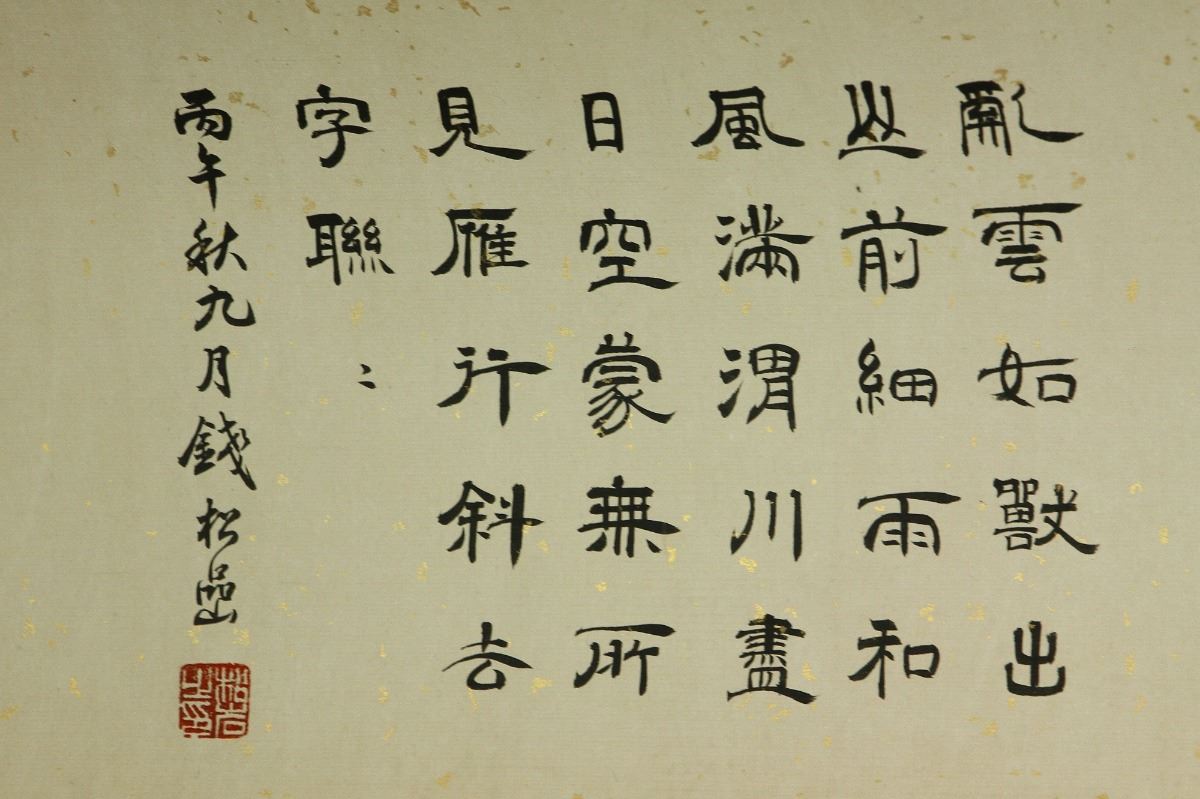 亂雲如獸出
山前細雨和
風滿渭川盡
日空蒙無所
見雁行斜去
字聯〻
丙午秋九月錢松嵒